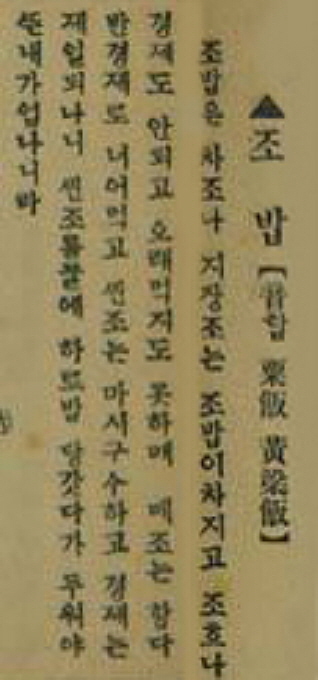 ▲조 밥 【슘합 粟飯 黃粱飯】
조밥은 차조나 지장조는 조밥이차지고 조흐나
경제도 안되고 오래먹지도 못하며 메조는 합다
반경제로 너어먹고 센조는 마시구수하고 경제는
제일되나니 센조를물에 하로밤 당갓다가 두워야
쓴내가업나니라